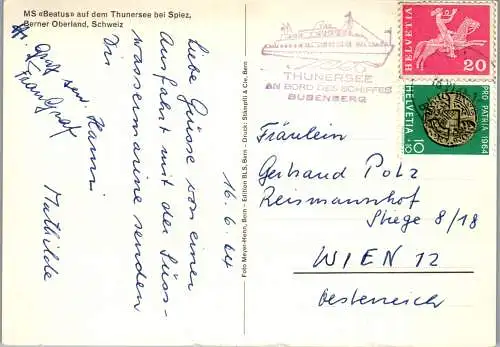 MS «Beatus» auf dem Thunersee bei Spiez,
Berner Oberland, Schweiz
Liebe Grüsse von einer
Ausfahrt mit der Süss-
wassermarine senden
Dir
Hanni
Mathilde
16.6.64
Foto Meyer-Henn, Bern - Edition BLS, Bern - Druck: Stämpfli & Cie, Bern
THUNERSEE
AN BORD DES SCHIFFES
BUBENBERG
HELVETIA
20
PRO PATRIA 1964
HELVETIA
10
+10
Fräulein
Gertraud Polz
Reismannshof
Stiege 8/18
WIEN 12
Oesterreich